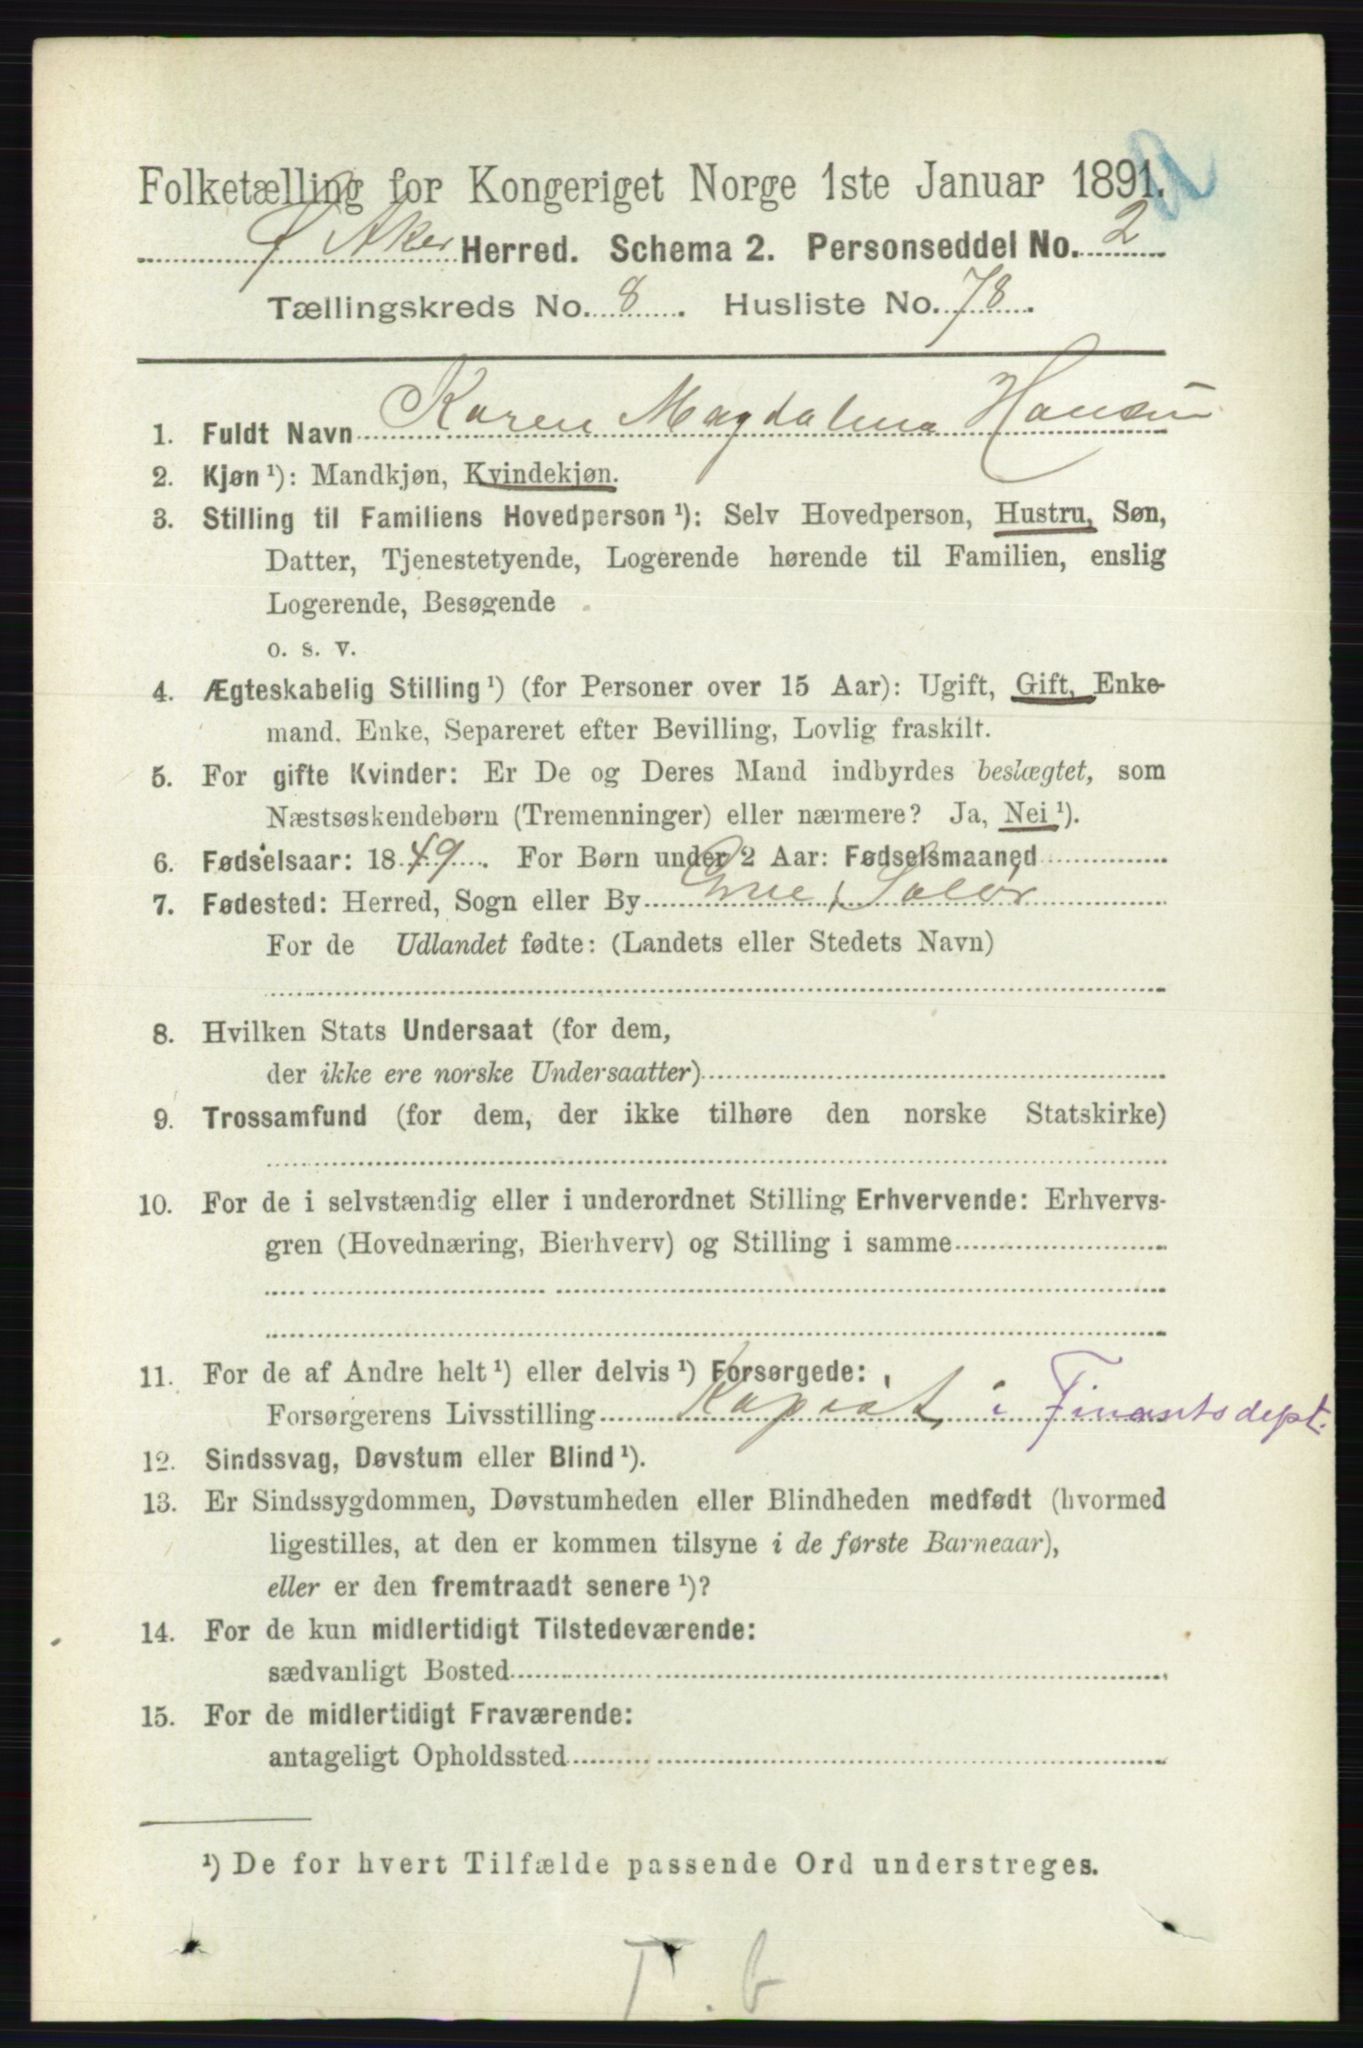 Folketælling for Kongeriget Norge 1ste Januar 1891.
Ø Aker Herred. Schema 2. Personseddel No. 2
Tællingskreds No. 8. Husliste No. 78.
1. Fuldt Navn Karen Magdalena Hansen
2. Kjøn¹): Mandkjøn, Kvindekjøn.
3. Stilling til Familiens Hovedperson¹): Selv Hovedperson, Hustru, Søn,
Datter, Tjenestetyende, Logerende hørende til Familien, enslig
Logerende, Besøgende
o. s. v.
4. Ægteskabelig Stilling¹) (for Personer over 15 Aar): Ugift, Gift, Enke-
mand, Enke, Separeret efter Bevilling, Lovlig fraskilt.
5. For gifte Kvinder: Er De og Deres Mand indbyrdes beslægtet, som
Næstsøskendebørn (Tremenninger) eller nærmere? Ja, Nei¹).
6. Fødselsaar: 1849. For Børn under 2 Aar: Fødselsmaaned
7. Fødested: Herred, Sogn eller By Grue, Solør
For de Udlandet fødte: (Landets eller Stedets Navn)
8. Hvilken Stats Undersaat (for dem,
der ikke ere norske Undersaatter)
9. Trossamfund (for dem, der ikke tilhøre den norske Statskirke)
10. For de i selvstændig eller i underordnet Stilling Erhvervende: Erhvervs-
gren (Hovednæring, Bierhverv) og Stilling i samme
11. For de af Andre helt¹) eller delvis¹) Forsørgede:
Forsørgerens Livsstilling Kopist i Finantsdept.
12. Sindssvag, Døvstum eller Blind¹).
13. Er Sindssygdommen, Døvstumheden eller Blindheden medfødt (hvormed
ligestilles, at den er kommen tilsyne i de første Barneaar),
eller er den fremtraadt senere¹)?
14. For de kun midlertidigt Tilstedeværende:
sædvanligt Bosted
15. For de midlertidigt Fraværende:
antageligt Opholdssted
¹) De for hvert Tilfælde passende Ord understreges.
T. b